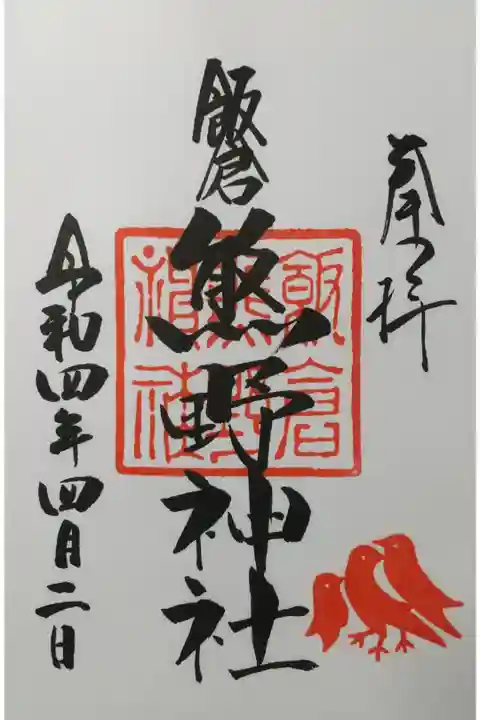 奉拝
飯倉
熊野神社
飯倉熊野神社
令和四年四月二日